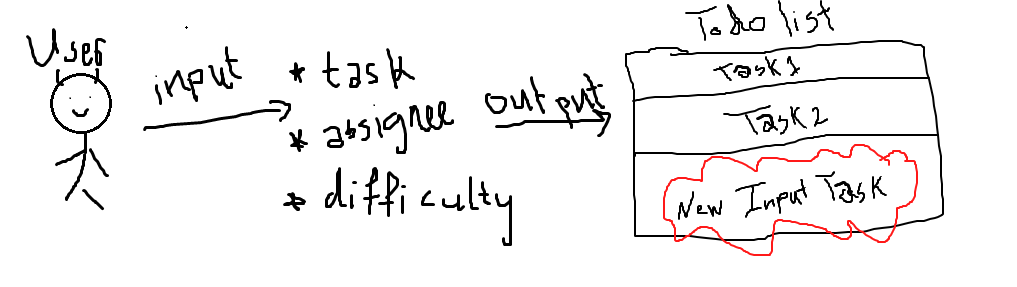 User
input
* task
* assignee
* difficulty
output
Todo list
Task1
Task2
New Input Task